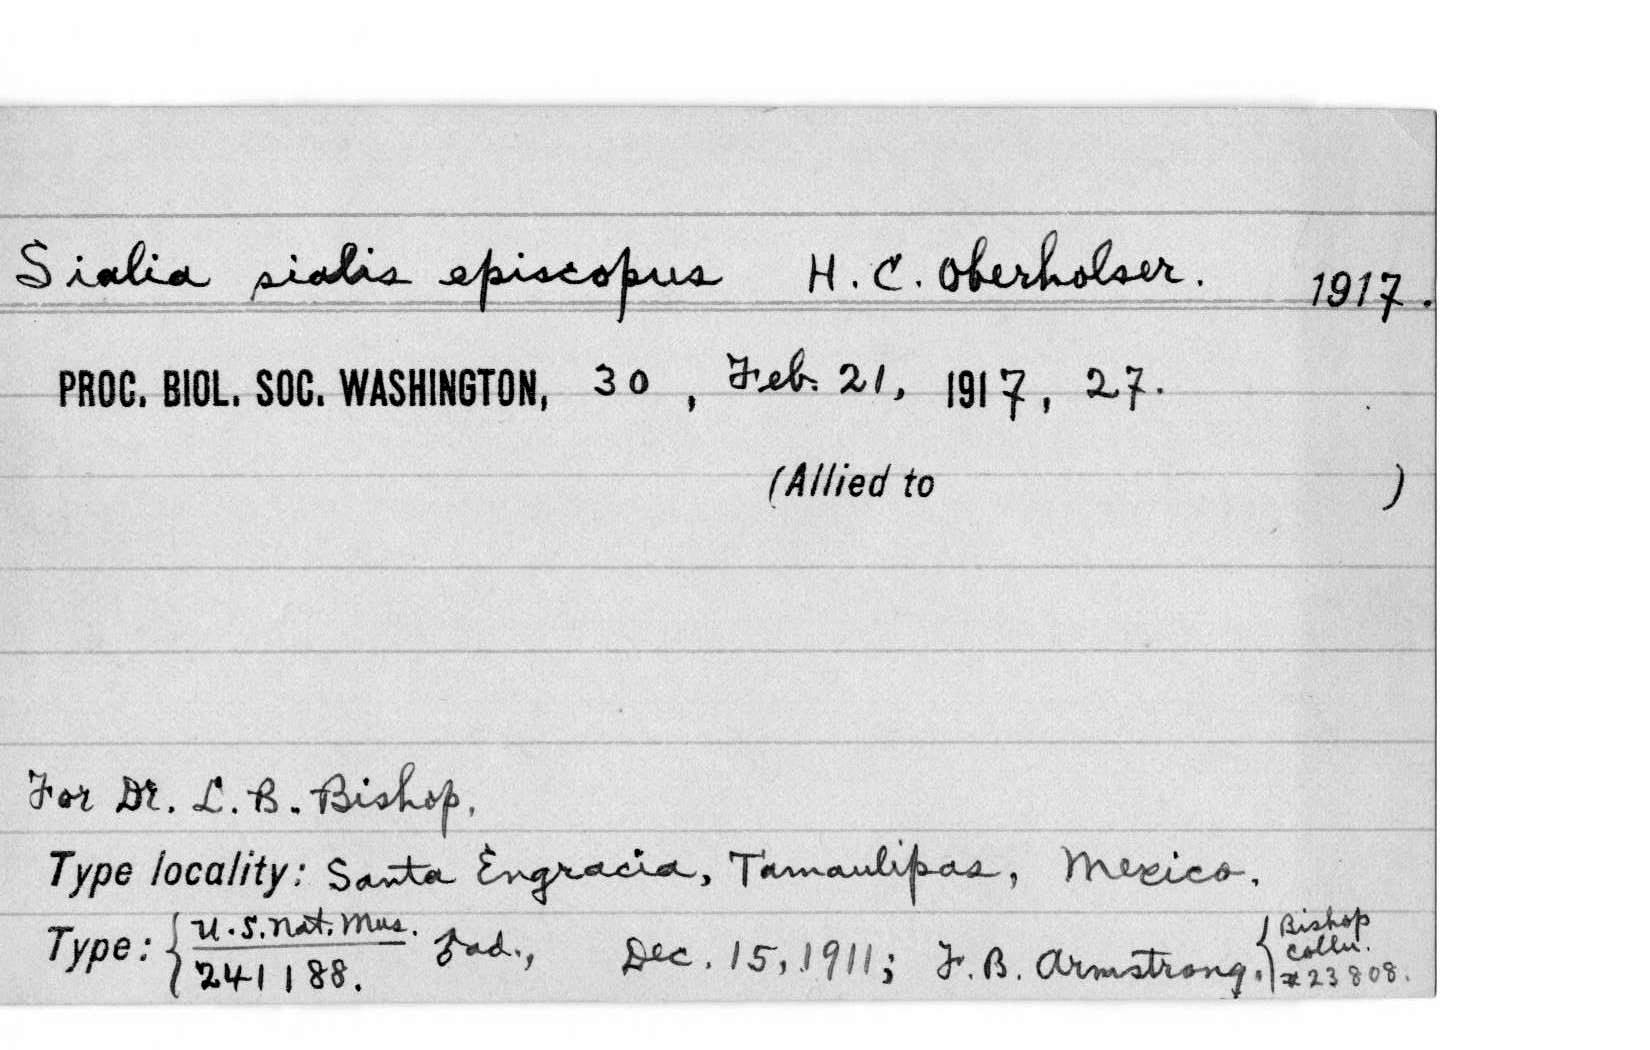 Sialia sialis episcopus H. C. Oberholser. 1917.
PROC. BIOL. SOC. WASHINGTON, 30, Feb. 21, 1917, 27.
(Allied to )
For Dr. L. B. Bishop.
Type locality: Santa Engracia, Tamaulipas, Mexico.
Type: { U.S. Nat. Mus. 241188. ad., Dec. 15, 1911; F. B. Armstrong. { Bishop colln. #23808.